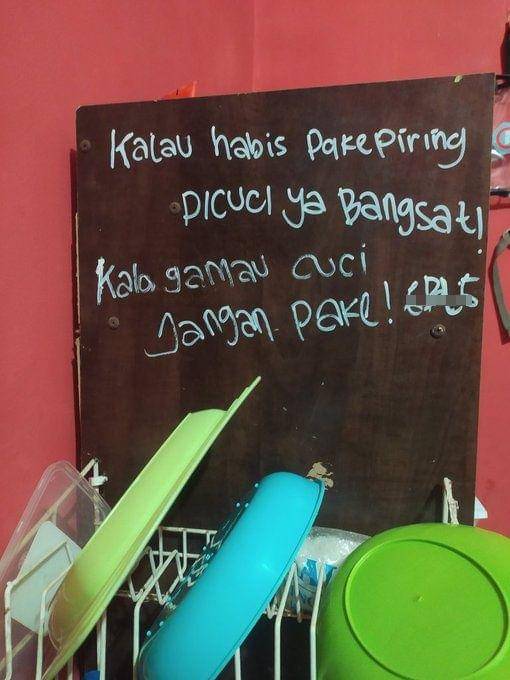 Kalau habis Pake Piring
DICUCI ya Bangsat!
Kalo gamau cuci
Jangan Pake!